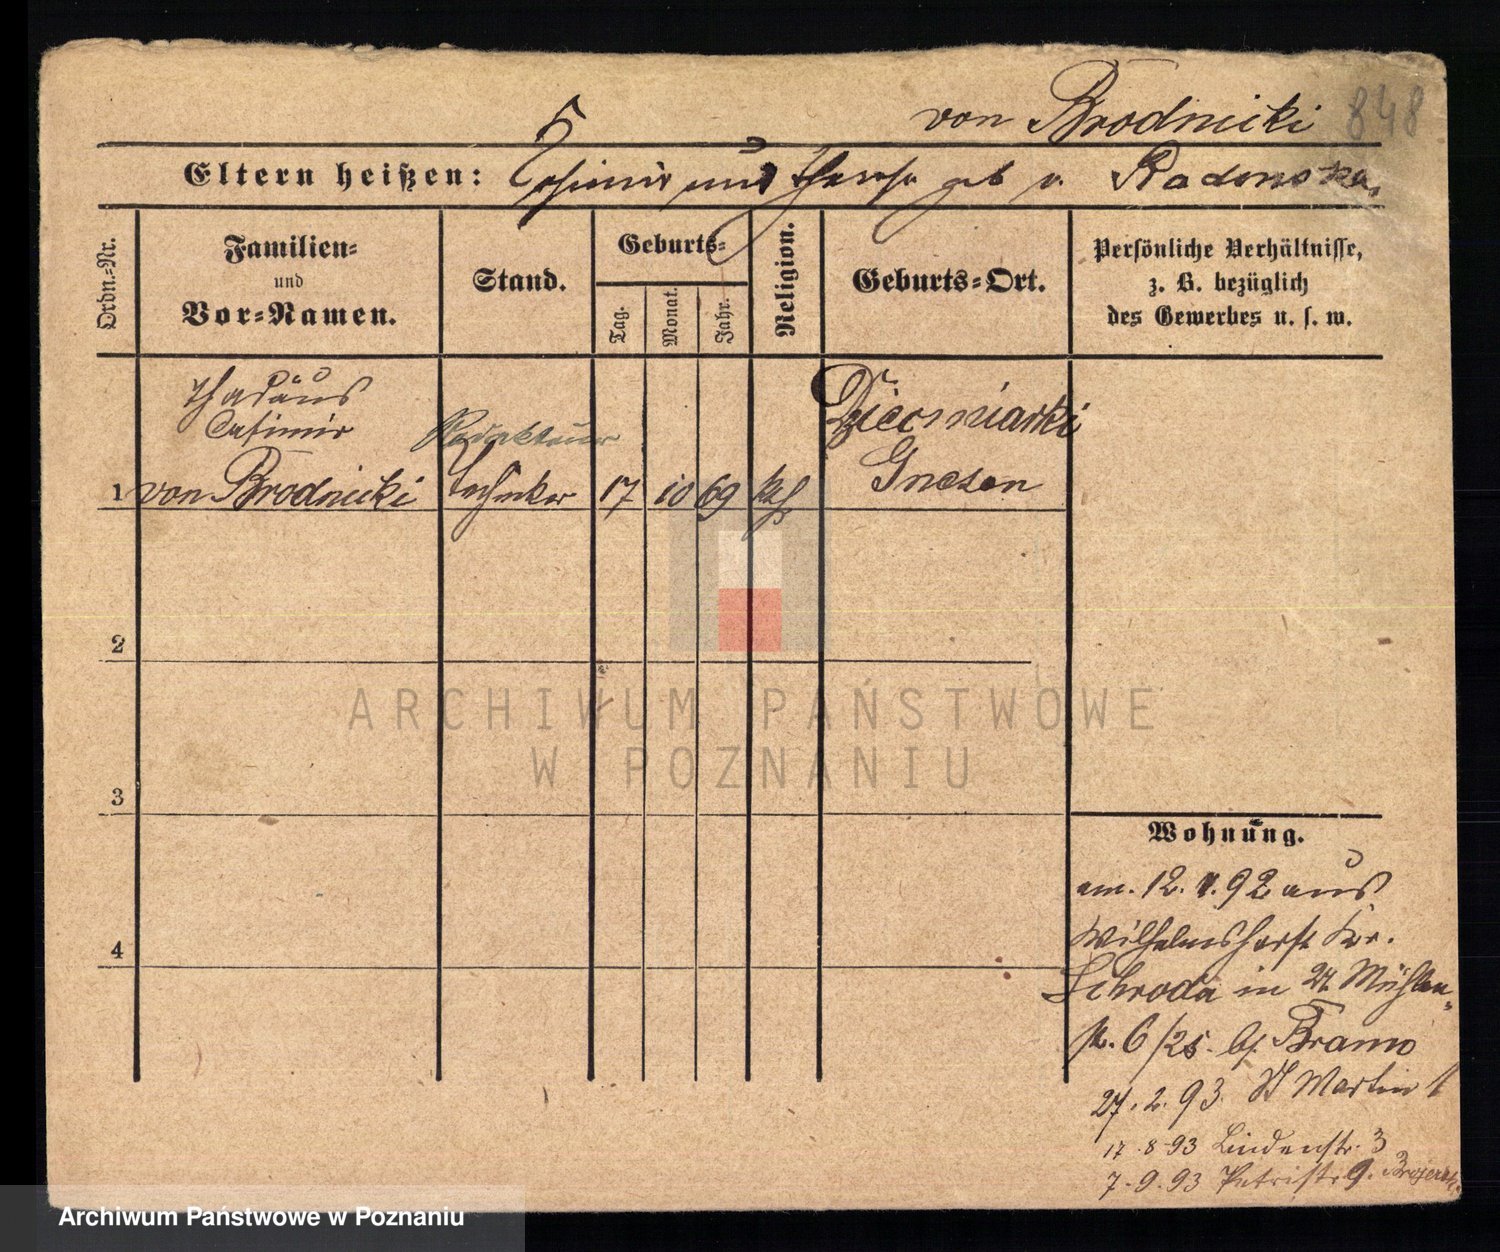 von Brodnicki 848
Eltern heißen: Casimir und Therese geb v. Radonska.
Ordn.-Nr.
Familien-
und
Vor-Namen.
Stand.
Geburts-
Tag.
Monat.
Jahr.
Religion.
Geburts-Ort.
Persönliche Verhältnisse,
z. B. bezüglich
des Gewerbes u. s. w.
Thadäus
Casimir
Redakteur
1 von Brodnicki Techniker 17 10 69 kth
Dziecmiarki
Gnesen
2
3
4
Wohnung.
am. 12. 1. 92 aus
Wilhelmshorst Kr.
Schroda in 27 Mühlen-
str. 6/25. b/
27. 2. 93 St Martin
17-8-93 Lindenstr. 3
7-9-93 Petristr. 9.
ARCHIWUM PAŃSTWOWE
W POZNANIU
Archiwum Państwowe w Poznaniu